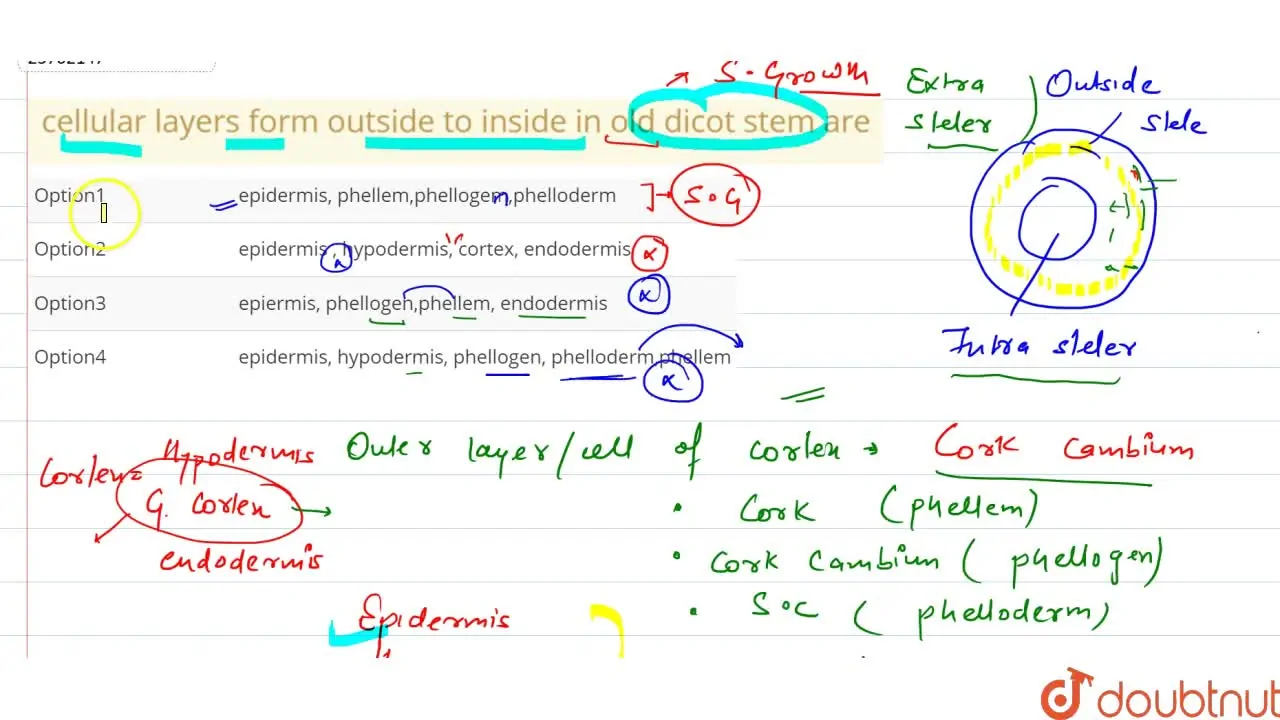 S. Growth
cellular layers form outside to inside in old dicot stem are
Extra steler
Outside stele
Option1 epidermis, phellem,phellogem,phelloderm
] → S.G
Option2 epidermis , hypodermis, cortex, endodermis
Option3 epiermis, phellogen,phellem, endodermis
Option4 epidermis, hypodermis, phellogen, phelloderm,phellem
Intra steler
Hypodermis
Cortex=
G. Cortex →
endodermis
Outer layer/cell of cortex → Cork cambium
• Cork (phellem)
• Cork Cambium (phellogen)
• S.C (phelloderm)
Epidermis
doubtnut